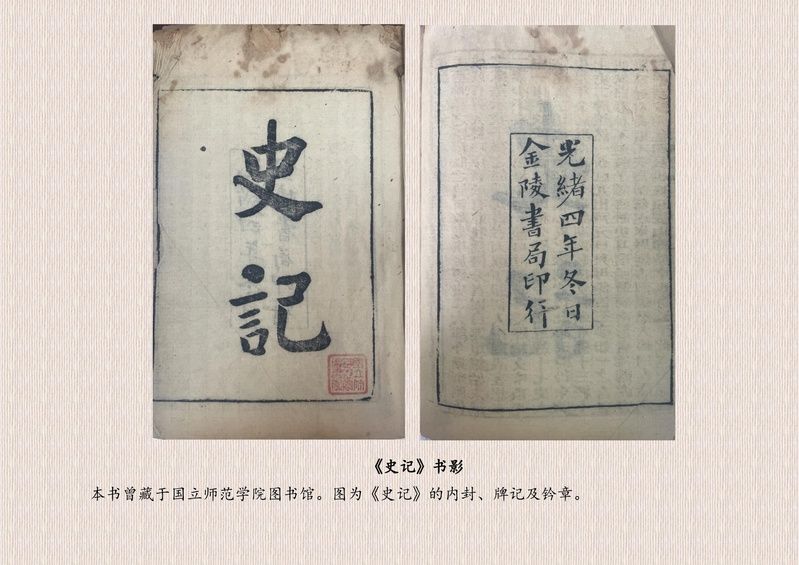 史記
光緒四年冬日
金陵書局印行
《史记》书影
本书曾藏于国立师范学院图书馆。图为《史记》的内封、牌记及钤章。